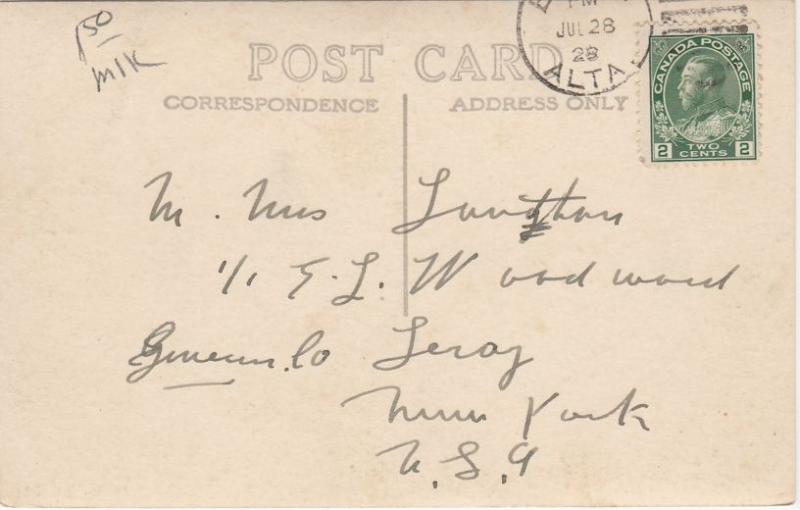 50
MIK
PM
JUL 28
28
ALTA.
CANADA POSTAGE
2 TWO CENTS 2
POST CARD
CORRESPONDENCE ADDRESS ONLY
M. Mrs
E. L. Woodward
Co Leroy
New York
U.S.A